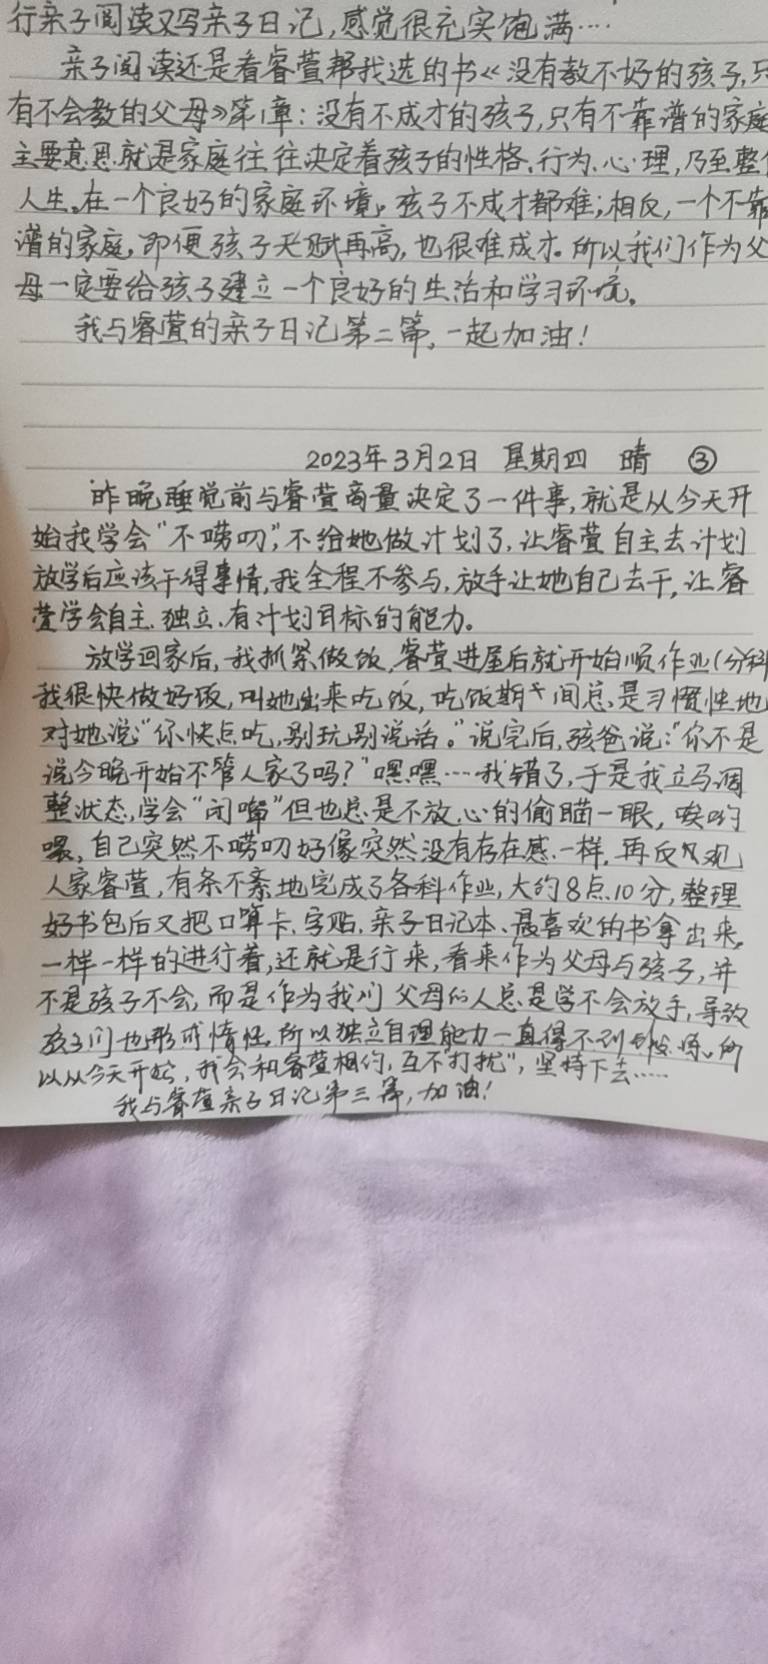 行亲子阅读又写亲子日记,感觉很充实饱满····
亲子阅读还是看睿萱帮我选的书《没有教不好的孩子,只
有不会教的父母》第1章:没有不成才的孩子,只有不靠谱的家庭
主要意思就是家庭往往决定着孩子的性格、行为、心理,乃至整
人生。在一个良好的家庭环境,孩子不成才都难;相反,一个不靠
谱的家庭,即便孩子天赋再高,也很难成才。所以我们作为父
母一定要给孩子建立一个良好的生活和学习环境。
我与睿萱的亲子日记第二篇,一起加油!
2023年3月2日 星期四 晴 ③
昨晚睡觉前与睿萱商量决定了一件事,就是从今天开
始我学会“不唠叨”,不给她做计划了,让睿萱自主去计划
放学后应该干得事情,我全程不参与,放手让她自己去干,让睿
萱学会自主、独立、有计划目标的能力。
放学回家后,我抓紧做饭,睿萱进屋后就开始顺作业(分科
我很快做好饭,叫她出来吃饭,吃饭期间总是习惯性地
对她说“你快点吃,别玩别说话。”说完后,孩爸说:“你不是
说今晚开始不管人家了吗?”嘿嘿····我错了,于是我立马调
整状态,学会“闭嘴”但也总是不放心的偷瞄一眼,唉哟
喂,自己突然不唠叨好像突然没有存在感一样,再反观
人家睿萱,有条不紊地完成了各科作业,大约8点10分,整理
好书包后又把口算卡、字贴、亲子日记本、最喜欢的书拿出来,
一样一样的进行着,还就是行来,看来作为父母与孩子,并
不是孩子不会,而是作为我们父母的人总是学不会放手,导致
孩子们也形成惰性,所以独立自理能力一直得不到锻炼。所
以从今天开始,我会和睿萱相约,互不“打扰”,坚持下去····
我与睿萱亲子日记第三篇,加油!